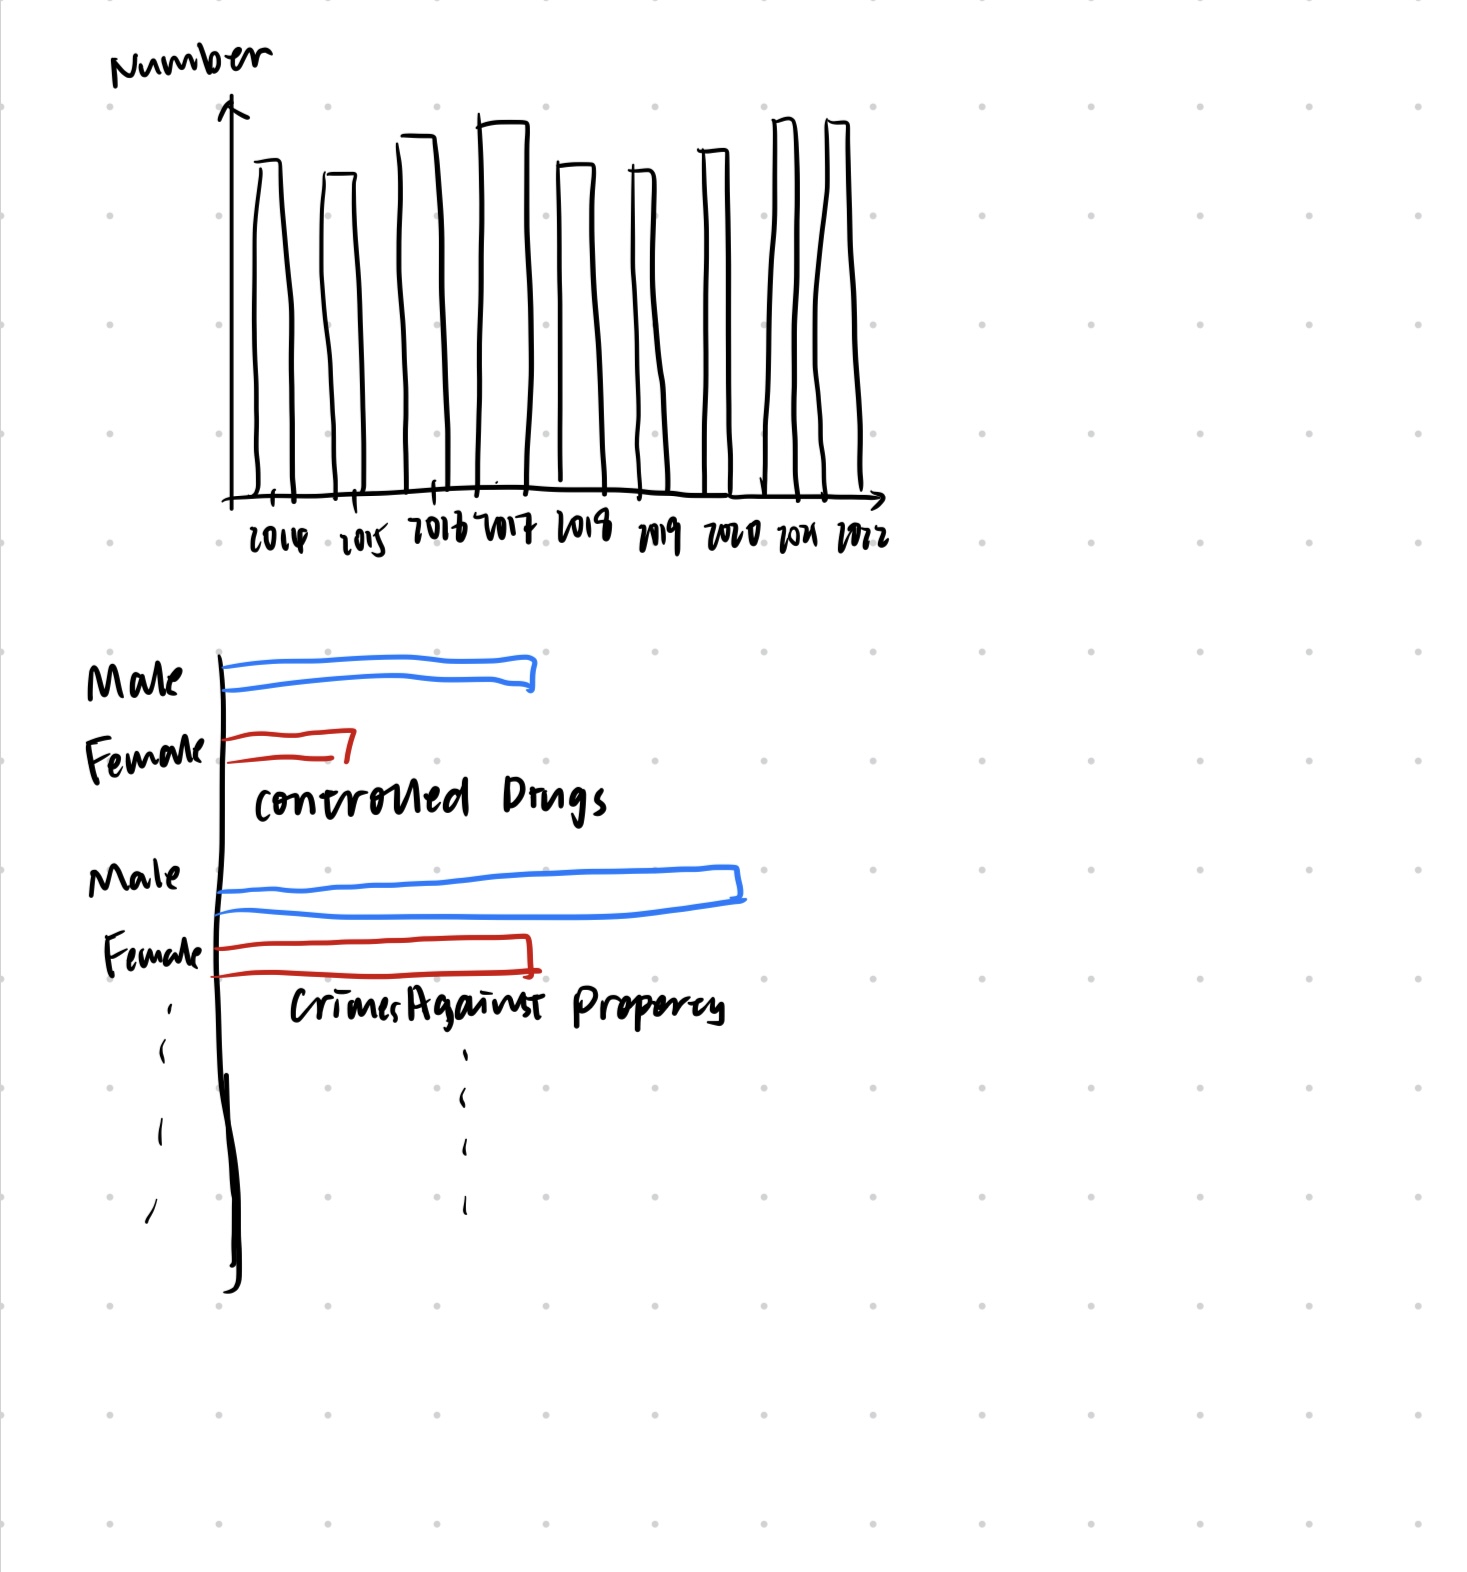 Number
2014 2015 2016 2017 2018 2019 2020 2021 2022
Male
Female
controlled Drugs
Male
Female
Crimes Against Property